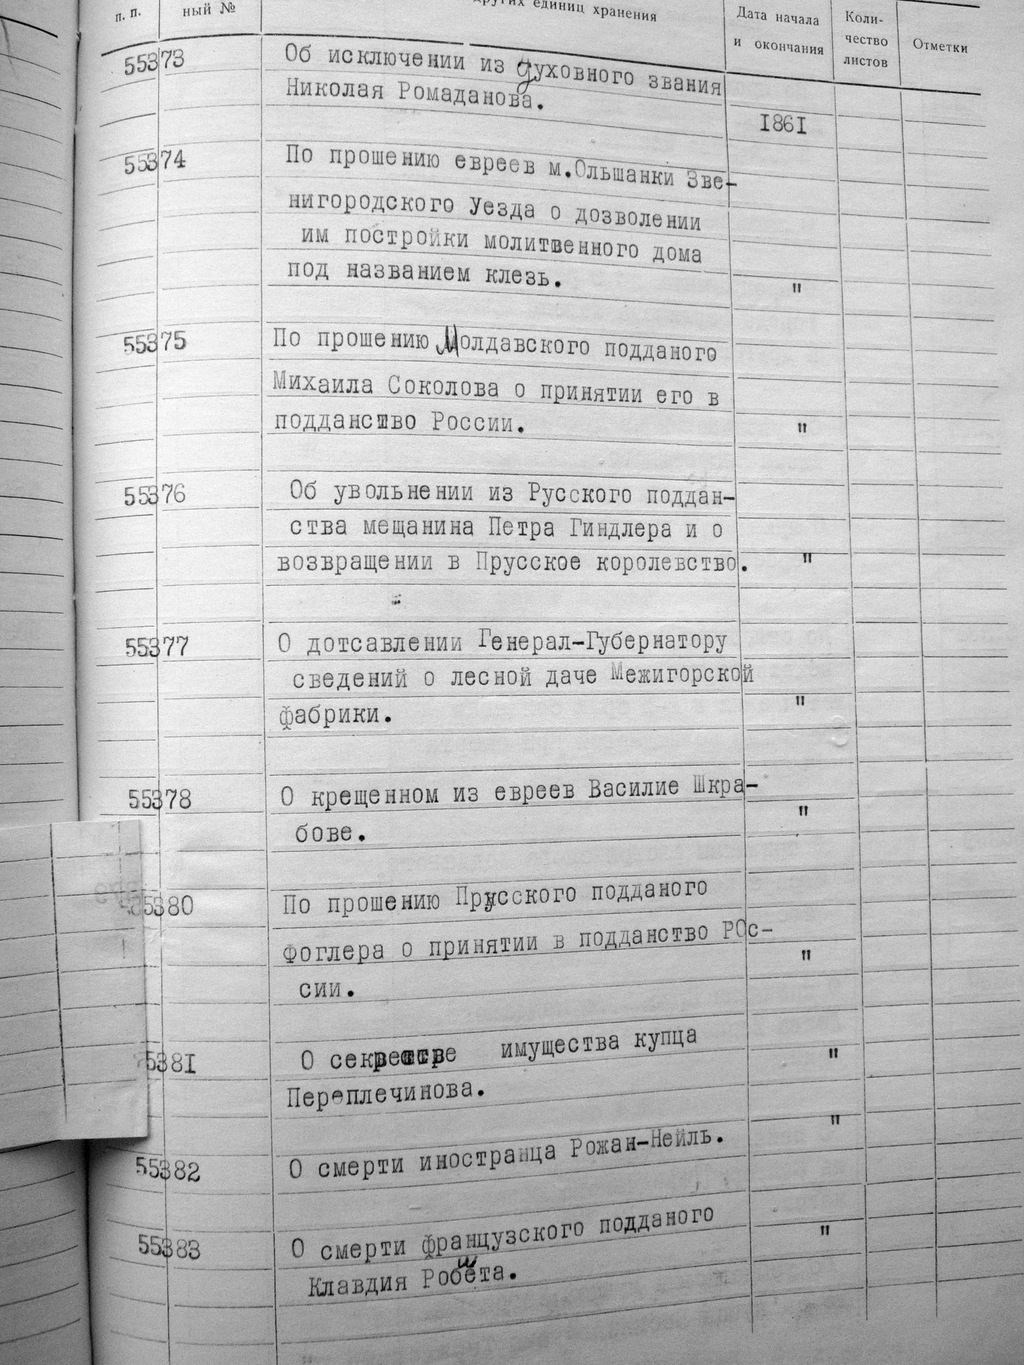 п. п.
ный №
других единиц хранения
Дата начала
и окончания
Коли-
чество
листов
Отметки
55373 Об исключении из духовного звания
Николая Ромаданова.
1861
55374 По прошению евреев м.Ольшанки Зве-
нигородского Уезда о дозволении
им постройки молитвенного дома
под названием клезь. "
55375 По прошению Молдавского подданого
Михаила Соколова о принятии его в
подданство России. "
55376 Об увольнении из Русского поддан-
ства мещанина Петра Гиндлера и о
возвращении в Прусское королевство. "
55377 О дотсавлении Генерал-Губернатору
сведений о лесной даче Межигорской
фабрики. "
55378 О крещенном из евреев Василие Шкра-
бове. "
55380 По прошению Прусского подданого
Фоглера о принятии в подданство РОс-
сии. "
55381 О секвестре имущества купца "
Переплечинова.
55382 О смерти иностранца Рожан-Нейль. "
55383 О смерти французского подданого "
Клавдия Робета.